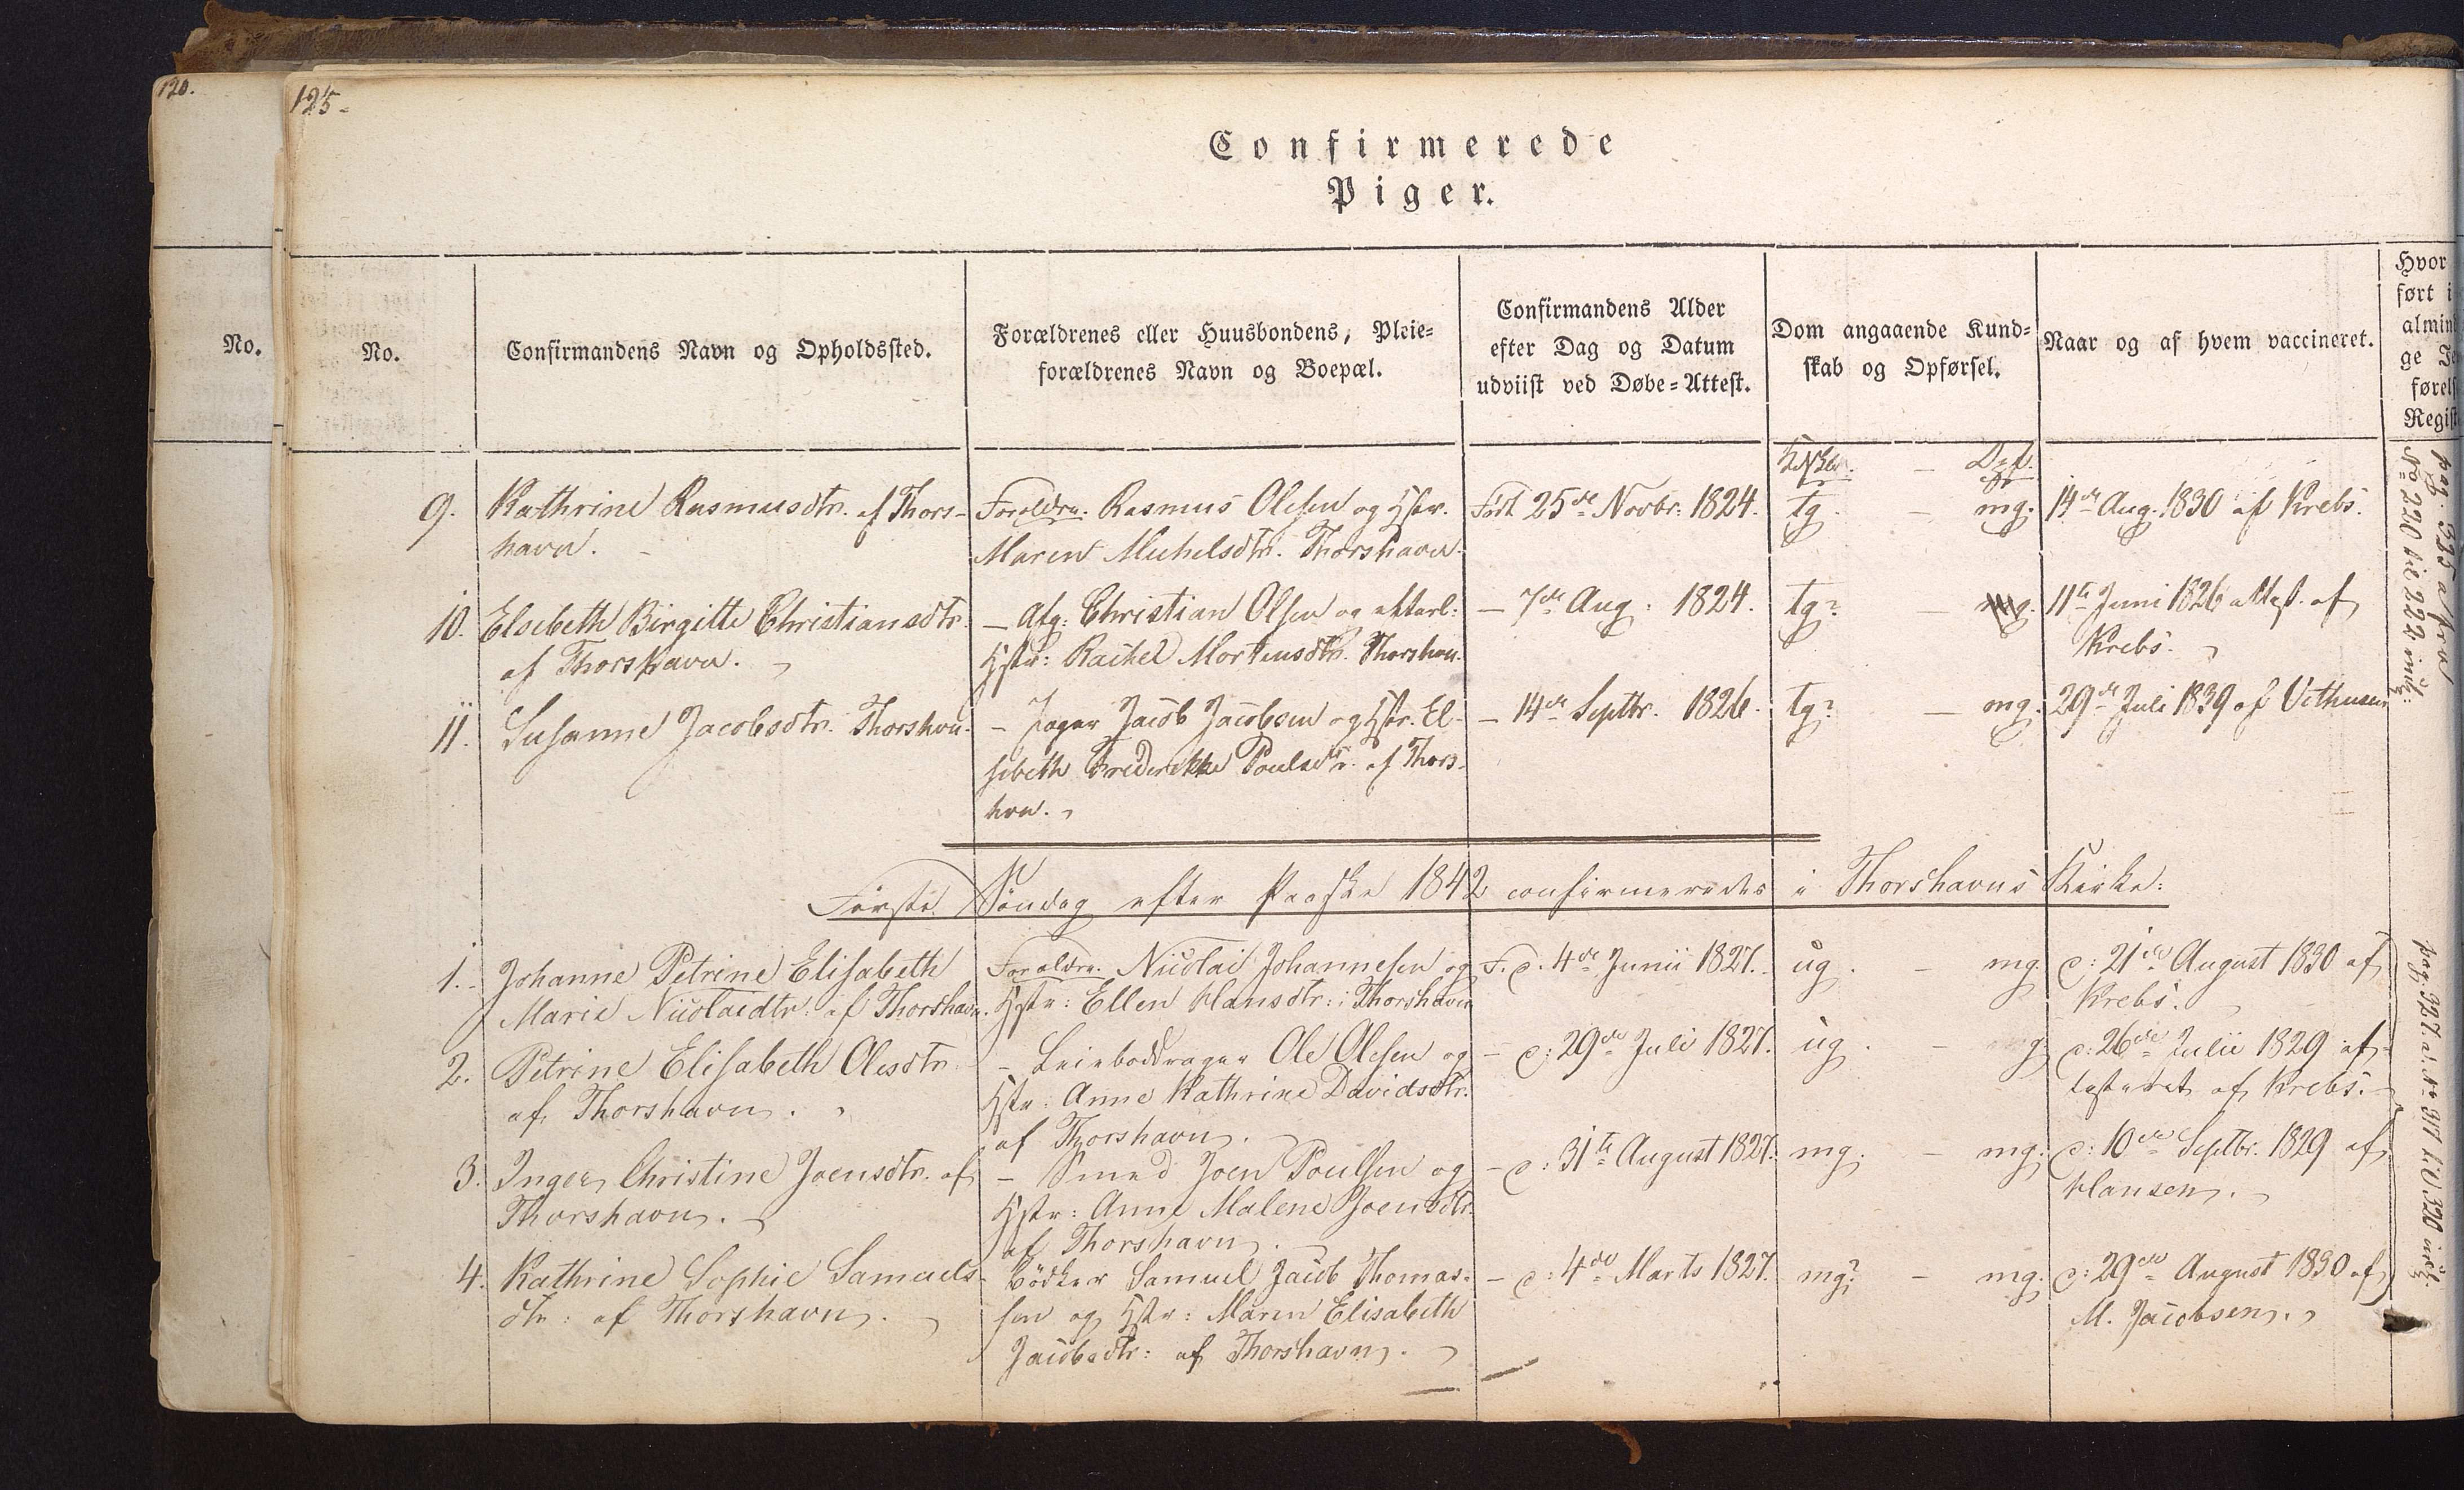 120.
125-
Confirmerede
Piger.
No.
No.
Confirmandens Navn og Opholdssted.
Forældrenes eller Huusbondens, Pleie-
forældrenes Navn og Boepæl.
Confirmandens Alder
efter Dag og Datum
udviist ved Døbe-Attest.
Dom angaaende Kund-
skab og Opførsel.
Naar og af hvem vaccineret.
Hvor
ført i
almin
ge
førels
Regist
9. Kathrine Rasmusdtr. af Thors-
havn.
Forældre. Rasmus Olesen og Hstr.
Maren Michelsdtr. Thorshavn.
Født 25de Novbr. 1824.
tg. – mg.
14de Aug. 1830 af Krebs.
10. Elsebeth Birgitte Christiansdtr.
af Thorshavn.
– Afg: Christian Olsen og efterl:
Hstr: Rachel Mortensdtr. Thorshvn.
– 7de Aug: 1824.
tg? – mg.
11te Juni 1826 attest. af
Krebs.
11. Susanne Jacobsdtr. Thorshvn.
– Jacob Jacobsen og Hstr. El-
sebeth Frederikke Poulsdtr. af Thors-
hvn.
– 14de Septbr. 1826.
tg? – mg.
29de Juli 1839 af
Første Søndag efter Paaske 1842 confirmeredes i Thorshavns Kirke:
1. Johanne Petrine Elisabeth
Marie Nicolaidtr. af Thorshavn.
Forældre. Nicolai Johannesen og
Hstr: Ellen Hansdtr: i Thorshavn
F. d. 4de Junii 1827.
ug. – mg.
d: 21de August 1830 af
Krebs.
2. Petrine Elisabeth Olesdtr.
af Thorshavn.
– Ole Olesen og
Hstr: Anne Kathrine Davidsdtr.
af Thorshavn.
– d: 29de Juli 1827.
ug. – g.
d: 26de Julii 1829 at-
testeret af Krebs.
3. Inger Christine Joensdtr. af
Thorshavn.
– Smed Joen Poulsen og
Hstr: Anne Malene Joensdtr.
af Thorshavn.
– d: 31te August 1827.
mg. – mg.
d: 10de Septbr. 1829 af
Hansen.
4. Kathrine Sophie Samuels-
dtr: af Thorshavn.
Bødker Samuel Jacob Thomas-
sen og Hstr: Maren Elisabeth
Jacobsdtr: af Thorshavn.
– d: 4de Marts 1827.
mg? – mg.
d: 29de August 1830 af
M. Jacobsen.
pag. 335
No 220 til 222 inkl:
pag. 337. No 317 til 320 inkl.